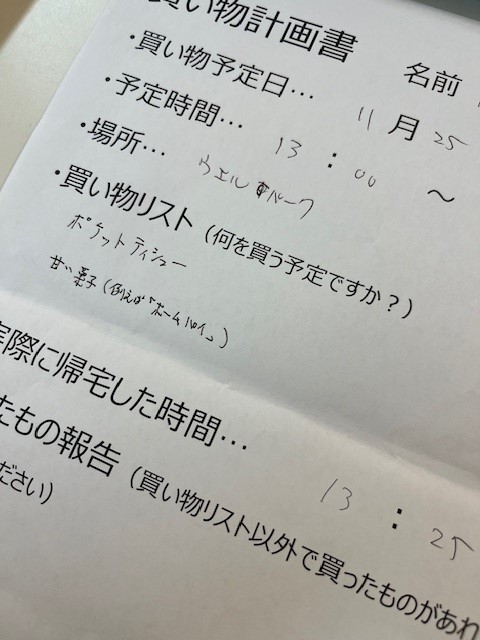 買い物計画書
名前
・買い物予定日… 11月25
・予定時間… 13:00 ～
・場所… ウエルパーク
・買い物リスト（何を買う予定ですか？）
ポケットティシュー
甘い菓子（例えば「ホームパイ」）
実際に帰宅した時間… 13:25
たもの報告（買い物リスト以外で買ったものがあれ
ださい）